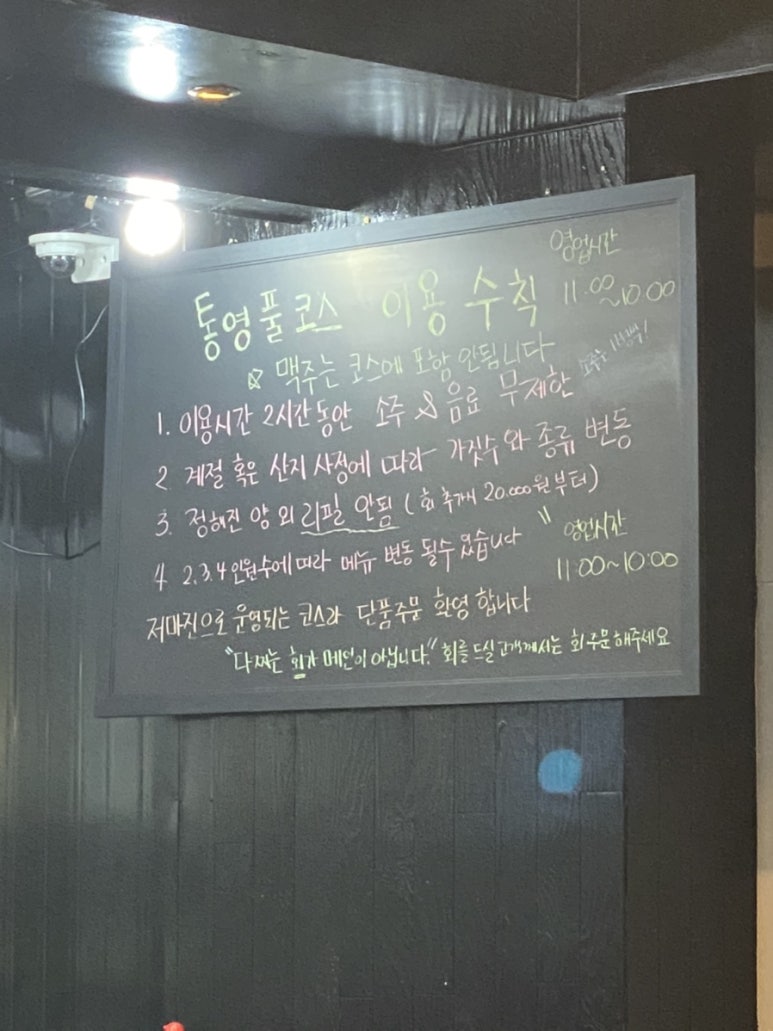 영업시간
11:00~10:00
통영풀코스 이용 수칙
☆ 맥주는 코스에 포함 안됩니다
소주는
1. 이용시간 2시간동안 소주 & 음료 무제한
2 계절 혹은 산지 사정에 따라 가짓수와 종류 변동
3. 정해진 양 외 리필 안됨 (회 추가시 20.000원부터)
4 2.3.4인원수에 따라 메뉴 변동 될수 있습니다 "
영업시간
11:00~10:00
저마진으로 운영되는 코스라 단품주문 환영 합니다
"다찌는 회가 메인이 아닙니다." 회를 드실 고객께서는 회주문해주세요